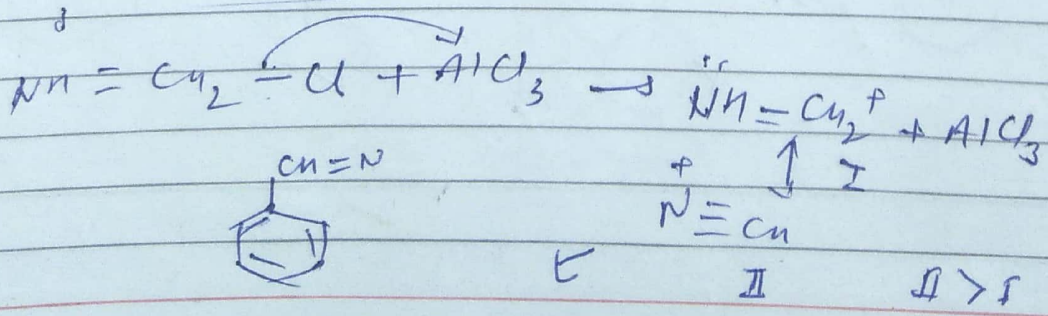 NH = CH₂ – Cl + AlCl₃ → N̈H = CH₂⁺ + AlCl₃
CH=N
↕ I
N⁺ ≡ CH
II II > I